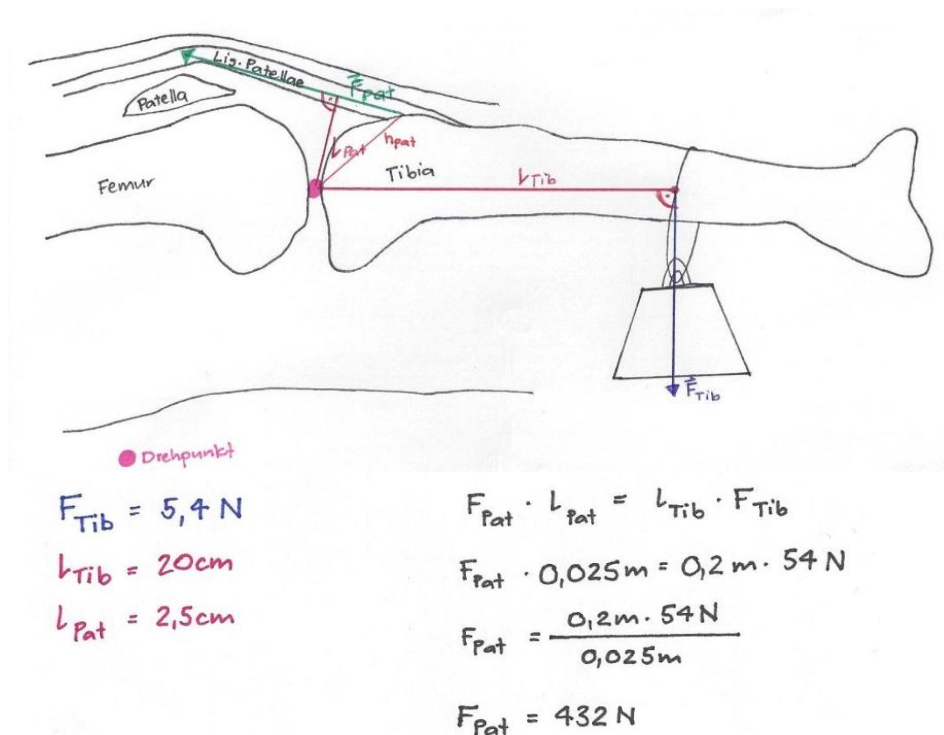 Lig. Patellae
F⃗pat
Patella
LPat
hpat
Tibia
LTib
Femur
F⃗Tib
Drehpunkt
FTib = 5,4 N
LTib = 20cm
LPat = 2,5cm
FPat · LPat = LTib · FTib
FPat · 0,025m = 0,2 m · 54 N
FPat = 0,2m · 54 N
0,025m
FPat = 432 N